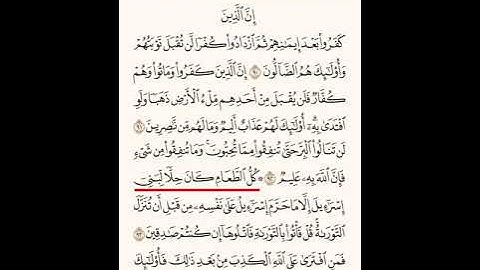 إِنَّ ٱلَّذِينَ
كَفَرُوا۟ بَعْدَ إِيمَـٰنِهِمْ ثُمَّ ٱزْدَادُوا۟ كُفْرًا لَّن تُقْبَلَ تَوْبَتُهُمْ
وَأُو۟لَـٰٓئِكَ هُمُ ٱلضَّآلُّونَ ٩٠ إِنَّ ٱلَّذِينَ كَفَرُوا۟ وَمَاتُوا۟ وَهُمْ
كُفَّارٌ فَلَن يُقْبَلَ مِنْ أَحَدِهِم مِّلْءُ ٱلْأَرْضِ ذَهَبًا وَلَوِ
ٱفْتَدَىٰ بِهِۦٓ ۗ أُو۟لَـٰٓئِكَ لَهُمْ عَذَابٌ أَلِيمٌ وَمَا لَهُم مِّن نَّـٰصِرِينَ ٩١
لَن تَنَالُوا۟ ٱلْبِرَّ حَتَّىٰ تُنفِقُوا۟ مِمَّا تُحِبُّونَ ۚ وَمَا تُنفِقُوا۟ مِن شَىْءٍ
فَإِنَّ ٱللَّهَ بِهِۦ عَلِيمٌ ٩٢ ۞ كُلُّ ٱلطَّعَامِ كَانَ حِلًّا لِّبَنِىٓ
إِسْرَٰٓءِيلَ إِلَّا مَا حَرَّمَ إِسْرَٰٓءِيلُ عَلَىٰ نَفْسِهِۦ مِن قَبْلِ أَن تُنَزَّلَ
ٱلتَّوْرَىٰةُ ۗ قُلْ فَأْتُوا۟ بِٱلتَّوْرَىٰةِ فَٱتْلُوهَآ إِن كُنتُمْ صَـٰدِقِينَ ٩٣
فَمَنِ ٱفْتَرَىٰ عَلَى ٱللَّهِ ٱلْكَذِبَ مِنۢ بَعْدِ ذَٰلِكَ فَأُو۟لَـٰٓئِكَ